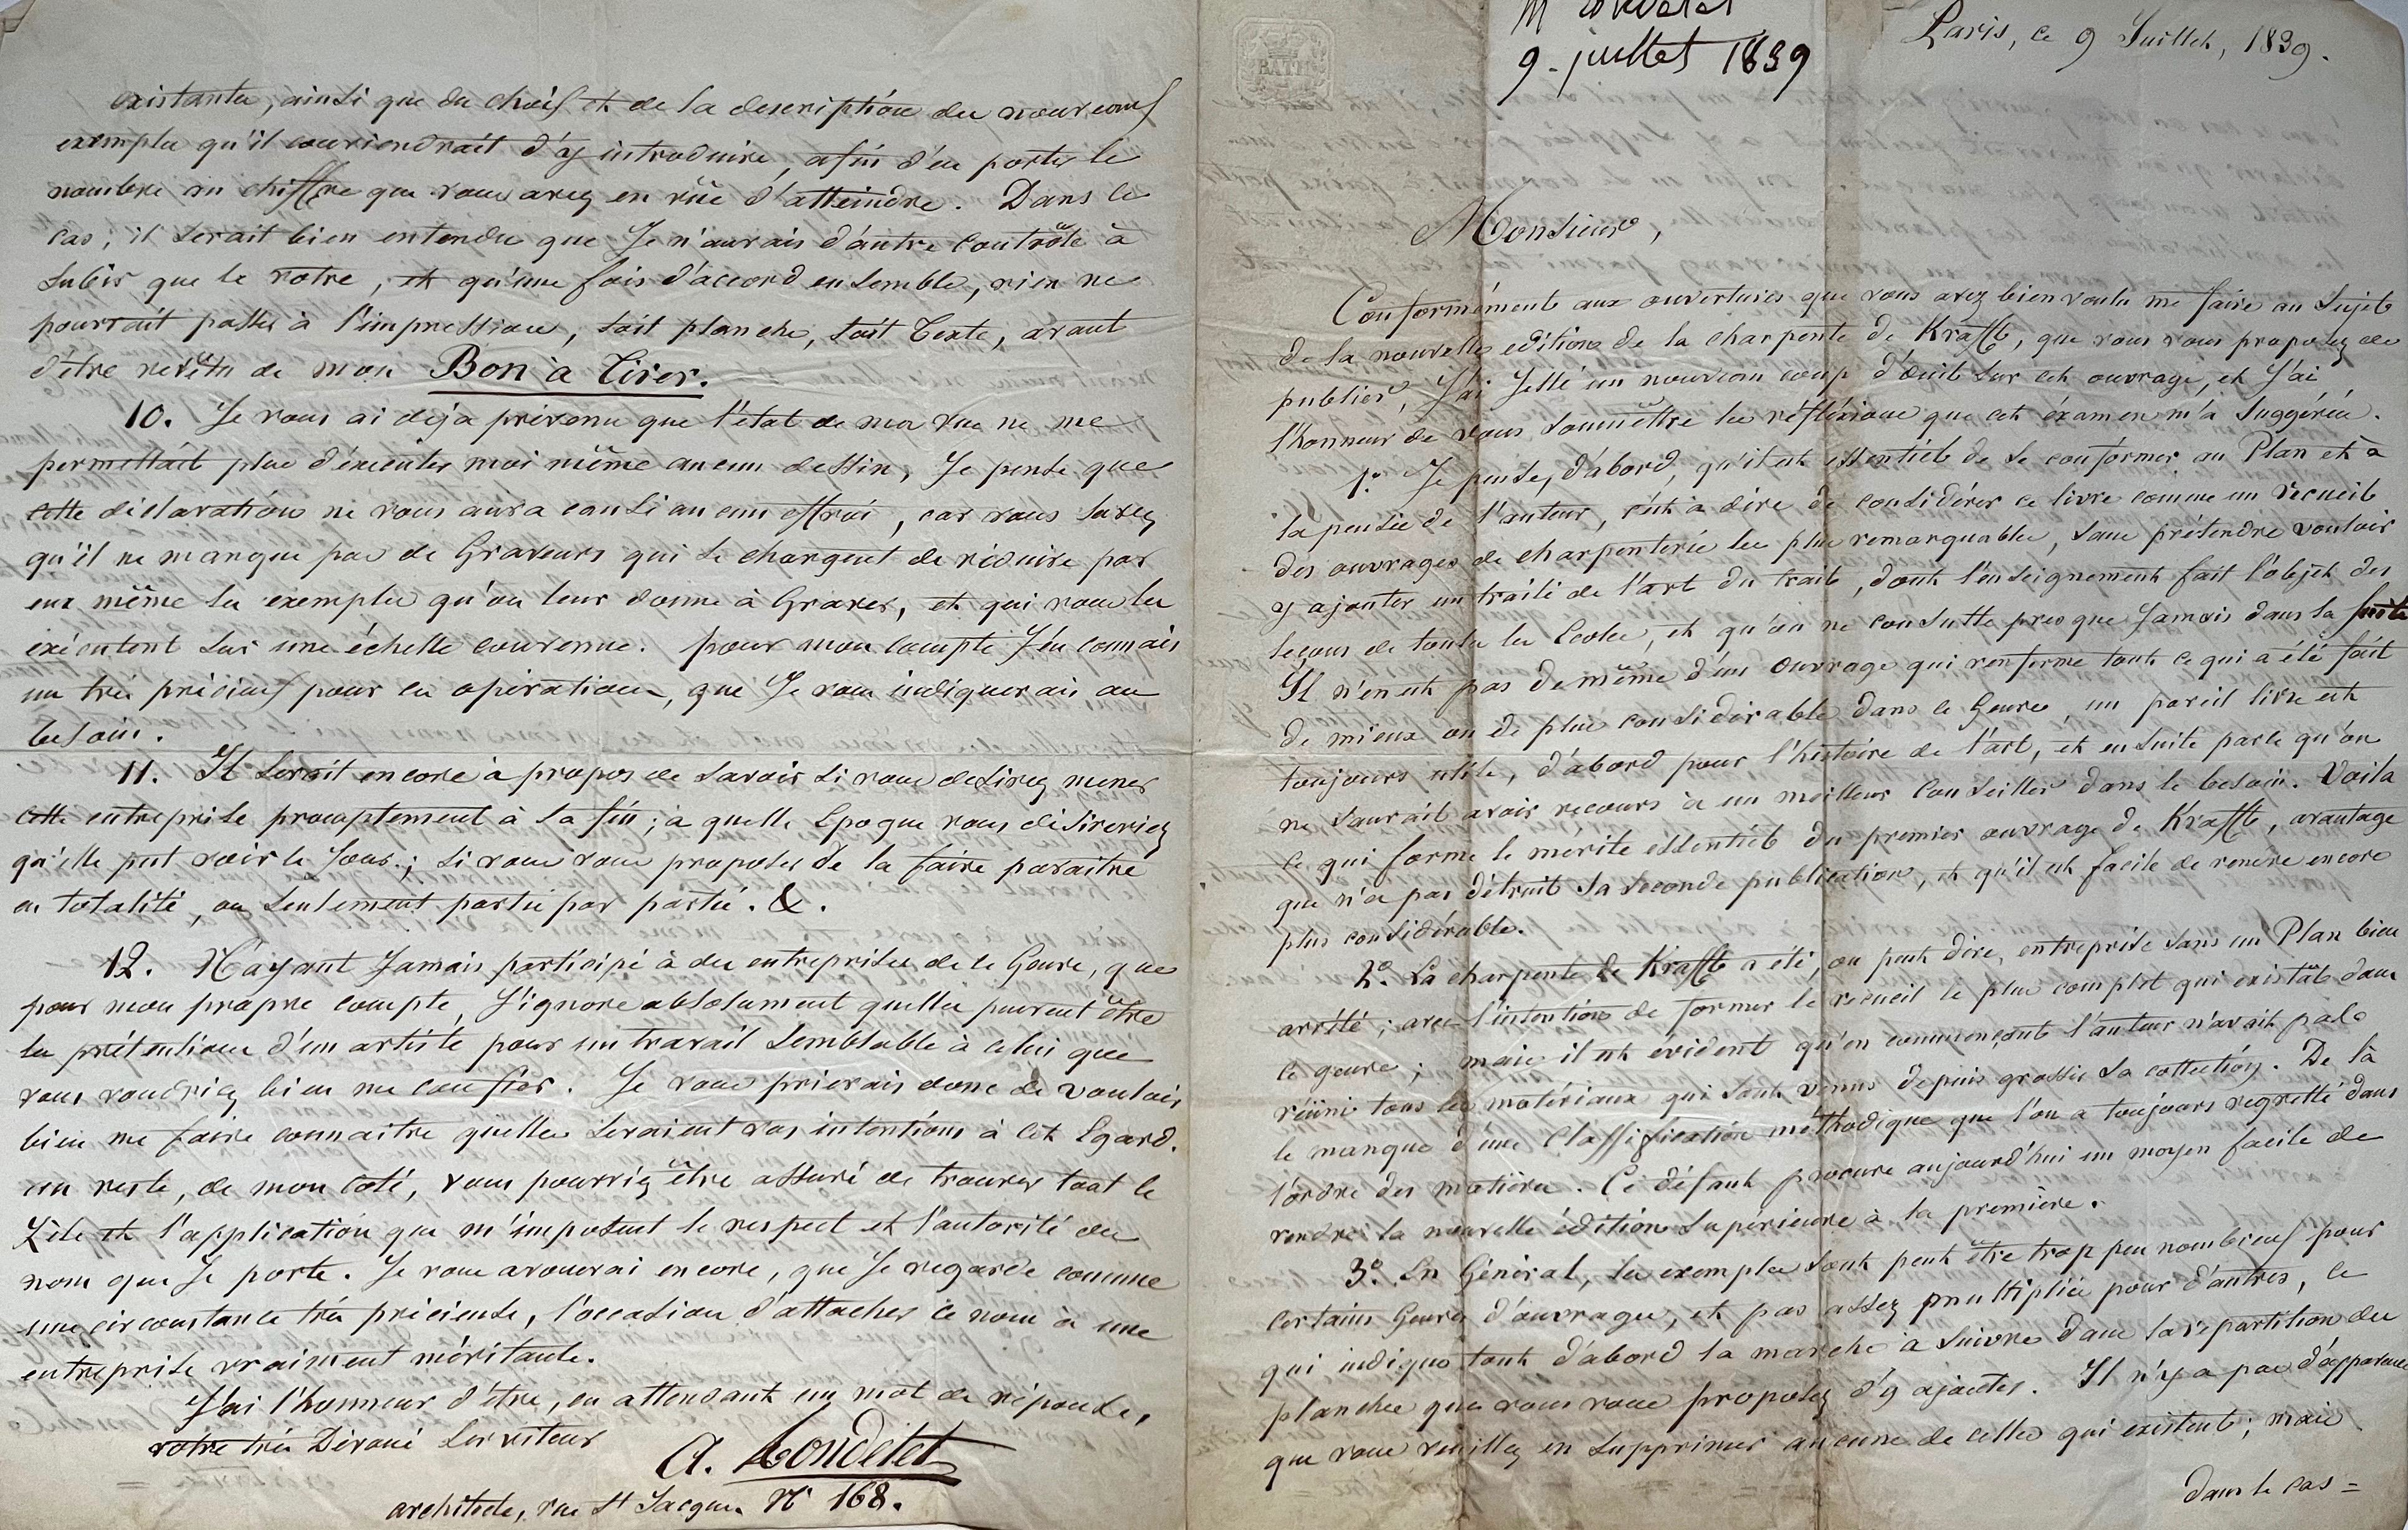 M Rondelet
9. juillet 1839
BATH
Paris, ce 9 Juillet, 1839.
Monsieur,
Conformément aux ouvertures que vous avez bien voulu me faire au Sujet
de la nouvelle edition de la charpente de Krafft, que vous vous proposez de
publier, J'ai Jetté un nouveau coup d'œuil Sur cet ouvrage, et J'ai
l'honneur de vous Soumettre les réfléxions que cet éxamen m'a Suggérées.
1º. Je pense, d'abord, qu'il est essentiel de Se conformer au Plan et à
la pensée de l'auteur, c'est à dire de considérer ce livre comme un recueil
des ouvrages de charpenterie les plus remarquables, Sans prétendre vouloir
y ajouter un traité de l'art du trait, dont l'enseignement fait l'objet des
leçons de toutes les Ecoles, et qu'on ne consulte presque Jamais dans la suite
Il n'en est pas de même d'un ouvrage qui renferme tout ce qui a été fait
de mieux ou de plus considérable dans ce Genre, un pareil livre est
toujours utile, d'abord pour l'histoire de l'art, et ensuite parce qu'on
ne Saurait avoir recours à un meilleur Conseiller dans le besoin. Voila
ce qui forme le mérite essentiel du premier ouvrage de Krafft, avantage
que n'a pas détruit Sa Seconde publication, et qu'il est facile de rendre encore
plus considérable.
2º. La charpente de Krafft a été, on peut dire, entreprise Sans un Plan bien
arrêté; avec l'intention de former le recueil le plus complet qui existât dans
ce genre; mais il est évident qu'en commençant l'auteur n'avait pas
réuni tous les matériaux qui Sont venus depuis grossir Sa collection. De là
le manque d'une Classification méthodique que l'on a toujours regretté dans
l'ordre des matières. Ce défaut procure aujourd'hui un moyen facile de
rendre la nouvelle édition Supérieure à la première.
3º. En Général, les exemples Sont peut être trop peu nombreux pour
certains Genres d'ouvrages, et pas assez multipliés pour d'autres, ce
qui indique tout d'abord la marche à Suivre dans la répartition des
planches que vous vous proposez d'y ajouter. Il n'y a pas d'apparence
que vous veuillez en Supprimer aucune de celles qui existent; mais
dans le cas =
existantes, ainsi que du choix et de la description des nouveaux
exemples qu'il conviendrait d'y introduire, afin d'en porter le
nombre au chiffre que vous avez en vüe d'atteindre. Dans ce
Cas; il Serait bien entendu que Je n'aurais d'autre Contrôle à
Subir que le votre, et qu'une fois d'accord ensemble, rien ne
pourrait passer à l'impression, Soit planche, Soit Texte, avant
d'être revêtu de mon Bon à Tirer.
10. Je vous ai déja prévenu que l'état de ma vue ne me
permettait plus d'éxécuter moi même aucun dessin, Je pense que
cette déclaration ne vous aura causé aucun effroi, car vous Savez
qu'il ne manque pas de Graveurs qui Se chargent de réduire par
eux même les exemples qu'on leur donne à Graver, et qui vous les
exécutent Sur une échelle convenue. pour mon Compte J'en connais
un très précieux pour ces opérations, que Je vous indiquerais au
besoin.
11. Il Serait encore à propos de Savoir Si vous desirez mener
cette entreprise promptement à Sa fin; à quelle Epoque vous désireriez
qu'elle put voir le Jour; Si vous vous proposez de la faire paraitre
en totalité, ou Seulement partie par partie. &.
12. N'ayant Jamais participé à des entreprises de ce Genre, que
pour mon propre compte, J'ignore absolument quelles peuvent être
les prétentions d'un artiste pour un travail Semblable à celui que
vous voudriez bien me confier. Je vous prierais donc de vouloir
bien me faire connaitre quelles Seraient vos intentions à cet Egard.
au reste, de mon coté, vous pourriez être assuré de trouver tout le
Zèle et l'application que m'imposent le respect et l'autorité du
nom que Je porte. Je vous avouerai encore, que Je regarde comme
une circonstance très précieuse, l'occasion d'attacher ce nom à une
entreprise vraiment méritante.
J'ai l'honneur d'être, en attendant un mot de réponse,
votre très Dévoué Serviteur
A. Rondelet
architecte, rue St Jacques Nº 168.